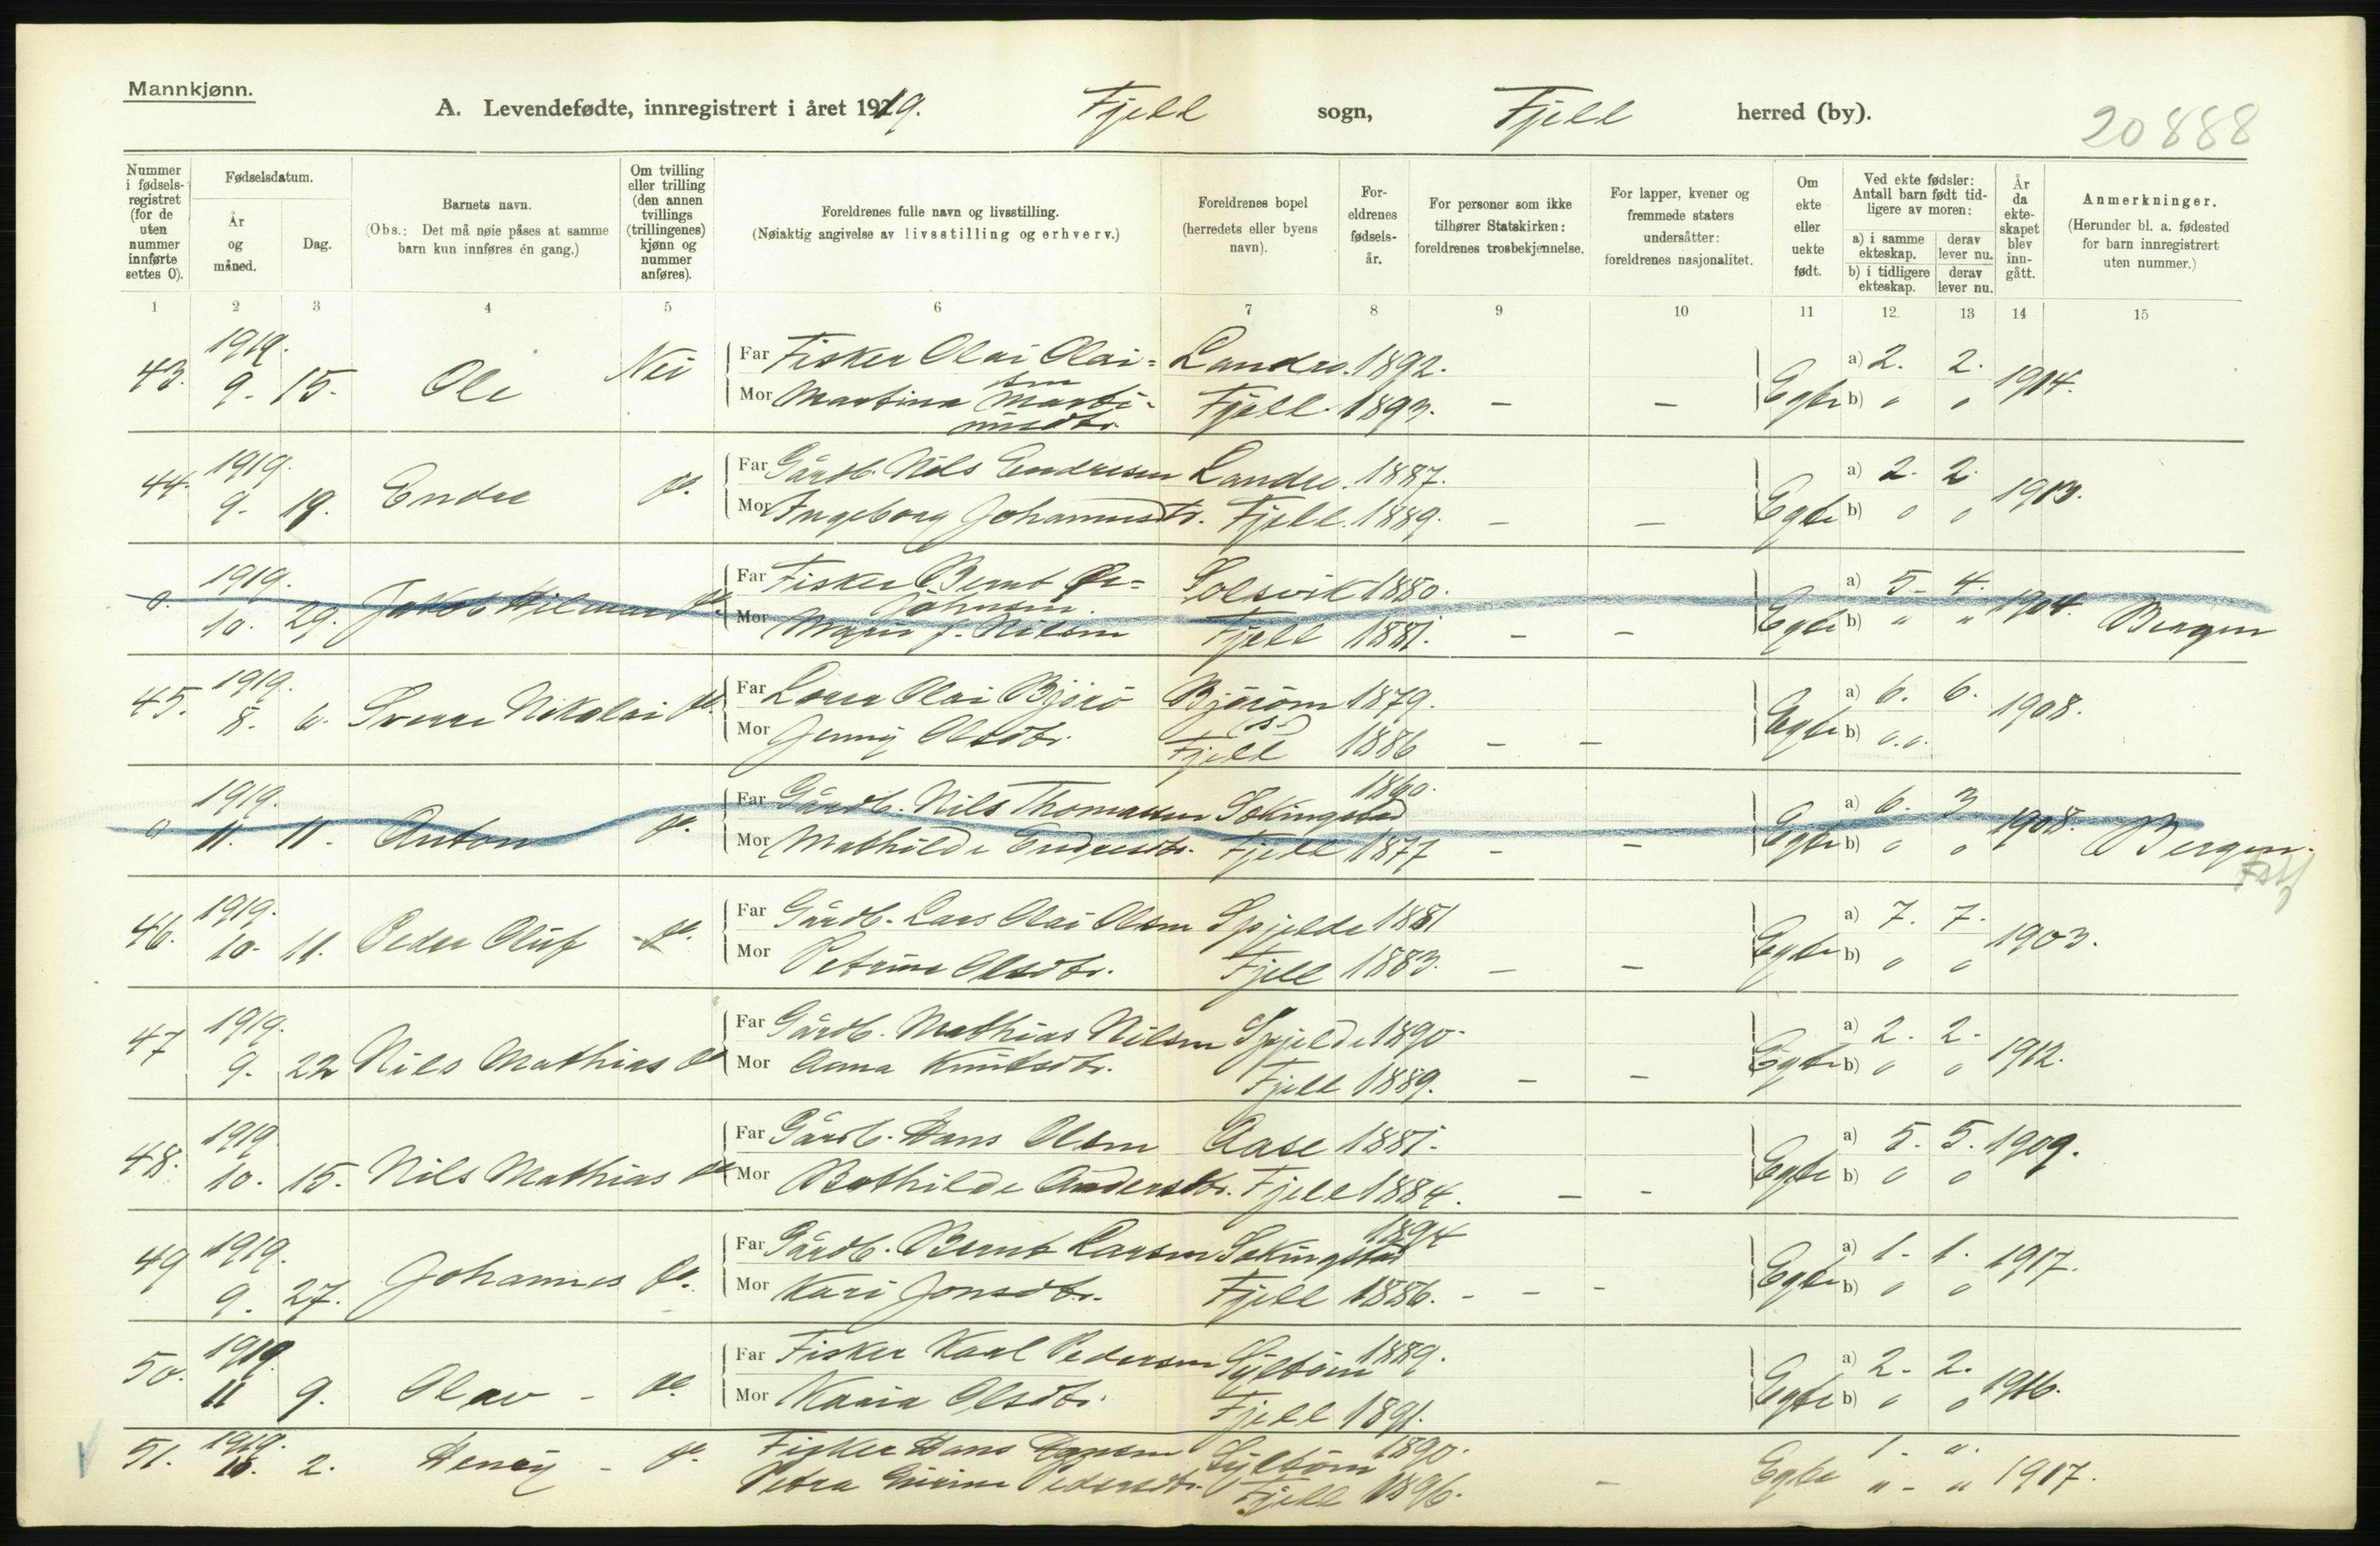 Mannkjønn.
A. Levendefødte, innregistrert i året 1919. Fjell sogn, Fjell herred (by). 20888
Nummer i fødsels-registret (for de uten nummer innførte settes 0).
Fødselsdatum.
År og måned.
Dag.
Barnets navn.
(Obs.: Det må nøie påses at samme barn kun innføres én gang.)
Om tvilling eller trilling (den annen tvillings (trillingenes) kjønn og nummer anføres).
Foreldrenes fulle navn og livsstilling.
(Nøiaktig angivelse av livsstilling og erhverv.)
Foreldrenes bopel (herredets eller byens navn).
For-eldrenes fødsels-år.
For personer som ikke tilhører Statskirken: foreldrenes trosbekjennelse.
For lapper, kvener og fremmede staters undersåtter: foreldrenes nasjonalitet.
Om ekte eller uekte født.
Ved ekte fødsler: Antall barn født tid-ligere av moren:
a) i samme ekteskap. derav lever nu.
b) i tidligere ekteskap. derav lever nu.
År da ekte-skapet blev inn-gått.
Anmerkninger.
(Herunder bl. a. fødested for barn innregistrert uten nummer.)
1 2 3 4 5 6 7 8 9 10 11 12 13 14 15
43. 1919. 9. 15. Ole Nei Far Fisker Olai Olai= Landro. 1892. a) 2. 2. 1914.
sen
Mor Martina Marti- Fjell. 1893. - - Egte b) " "
nusdtr.
44. 1919. 9. 19. Endre do. Far Gårdb. Nils Endresen Landro. 1887. a) 2. 2. 1913.
Mor Ingeborg Johannesdtr. Fjell. 1889. - - Egte b) " "
0. 1919. 10. 29. Jakob Hilmar do. Far Fisker Bernt = Solsvik 1880. a) 5- 4. 1904. Bergen
Johnsen.
Mor f. Nilsen Fjell 1881. - - Egte b) " "
45. 1919. 8. 6. Sverre Nikolai do. Far Olai Bjorö Björöen 1879. a) 6. 6. 1908.
Mor Jenny Olsdtr. Fjell 1886 - - Egte b) "."
0 1919. 11. 11. Anton do. Far Gårdb. Nils Thomassen Sekingstad 1860. a) 6. 3 1908. Bergen.
Mor Mathilde Endresdtr. Fjell 1877 - - Egte b) " "
46. 1919. 10. 11. Peder Oluf do. Far Gårdb. Lars Olai Olsen Spjelde 1881 a) 7. 7. 1903.
Mor Petrine Olsdtr. Fjell 1883. - - Egte b) " "
47 1919. 9. 22 Nils Mathias do Far Gårdb. Mathias Nilsen Spjelde 1890. a) 2. 2. 1912.
Mor Anna Knutsdtr. Fjell 1889. - - Egte b) " "
48. 1919 10. 15. Nils Mathias do Far Gårdb. Hans Olsen Aase 1881. a) 5. 5. 1909.
Mor Bothilde Andersdtr. Fjell 1884. - - Egte b) " "
49 1919. 9. 27. Johannes do. Far Gårdb. Bernt Larsen Sekingstad 1894 a) 1. 1. 1917.
Mor Kari Jonsdtr. Fjell 1886. - - - Egte b) " "
50. 1919. 11 9. Olav - do. Far Fisker Karl Pedersen Syltöen 1889. a) 2. 2. 1916.
Mor Maria Olsdtr. Fjell 1891. Egte b) " "
51. 1919. 10. 2. Henry - do. Fisker Hans Syltöen 1890. 1 - "
Petra Pedersdtr. Fjell 1896. - Egte " - " 1917.